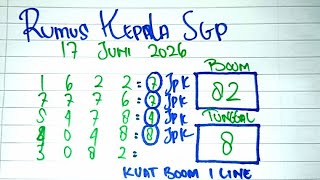 RUMUS KEPALA SGP
17 JUNI 2026
BOOM
1 6 2 2 : 7 JPK
82
7 7 7 6 : 2 JPK
TUNGGAL
5 4 7 8 : 4 JPK
8 0 4 8 : 8 JPK
8
7 3 0 8 2 :
KUAT BOOM 1 LINE